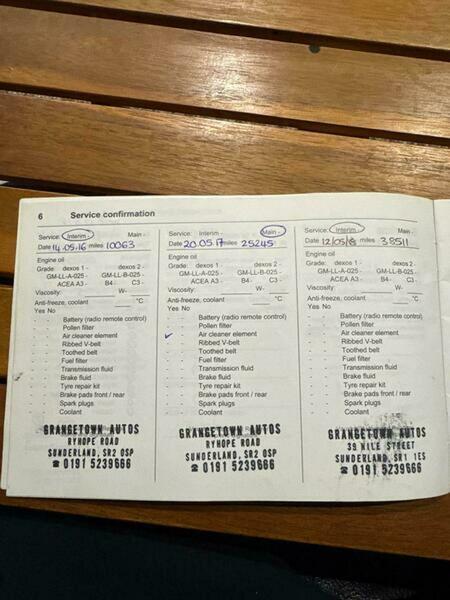 6 Service confirmation
Service: Interim - Main -
Date 14.05.16 miles 10063
Engine oil
Grade: dexos 1 - dexos 2 -
GM-LL-A-025 - GM-LL-B-025 -
ACEA A3 - B4 - C3 -
Viscosity: W-
Anti-freeze, coolant °C
Yes No
- - Battery (radio remote control)
- - Pollen filter
- - Air cleaner element
- - Ribbed V-belt
- - Toothed belt
- - Fuel filter
- - Transmission fluid
- - Brake fluid
- - Tyre repair kit
- - Brake pads front / rear
- - Spark plugs
- - Coolant
GRANGETOWN AUTOS
RYHOPE ROAD
SUNDERLAND, SR2 0SP
☎ 0191 5239666
Service: Interim - Main -
Date 20.05.17 miles 25245
Engine oil
Grade: dexos 1 - dexos 2 -
GM-LL-A-025 - GM-LL-B-025 -
ACEA A3 - B4 - C3 -
Viscosity: W-
Anti-freeze, coolant °C
Yes No
- - Battery (radio remote control)
- - Pollen filter
✓ - Air cleaner element
- - Ribbed V-belt
- - Toothed belt
- - Fuel filter
- - Transmission fluid
- - Brake fluid
- - Tyre repair kit
- - Brake pads front / rear
- - Spark plugs
- - Coolant
GRANGETOWN AUTOS
RYHOPE ROAD
SUNDERLAND, SR2 0SP
☎ 0191 5239666
Service: Interim - Main -
Date 12/05/18 miles 38511
Engine oil
Grade: dexos 1 - dexos 2 -
GM-LL-A-025 - GM-LL-B-025 -
ACEA A3 - B4 - C3 -
Viscosity: W-
Anti-freeze, coolant °C
Yes No
- - Battery (radio remote control)
- - Pollen filter
- - Air cleaner element
- - Ribbed V-belt
- - Toothed belt
- - Fuel filter
- - Transmission fluid
- - Brake fluid
- - Tyre repair kit
- - Brake pads front / rear
- - Spark plugs
- - Coolant
GRANGETOWN AUTOS
39 NILE STREET
SUNDERLAND, SR1 1ES
☎ 0191 5239666